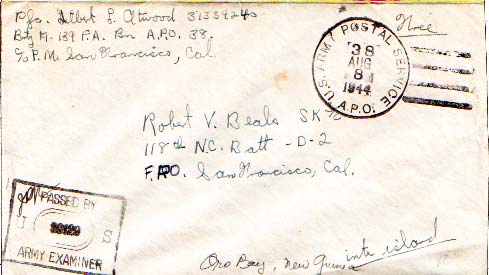 Pfc. Albert L. Atwood 31334240
Free
Bty A. 139 F.A. Bn A.P.O. 38.
c/o P.M. San Francisco, Cal.
U.S. ARMY POSTAL SERVICE
38
AUG
8
1944
A.P.O.
Robert V. Beals SK
118th N.C. Batt - D-2
F.P.O. San Francisco, Cal.
PASSED BY
U S
ARMY EXAMINER
Oro Bay, New Guinea
inter island